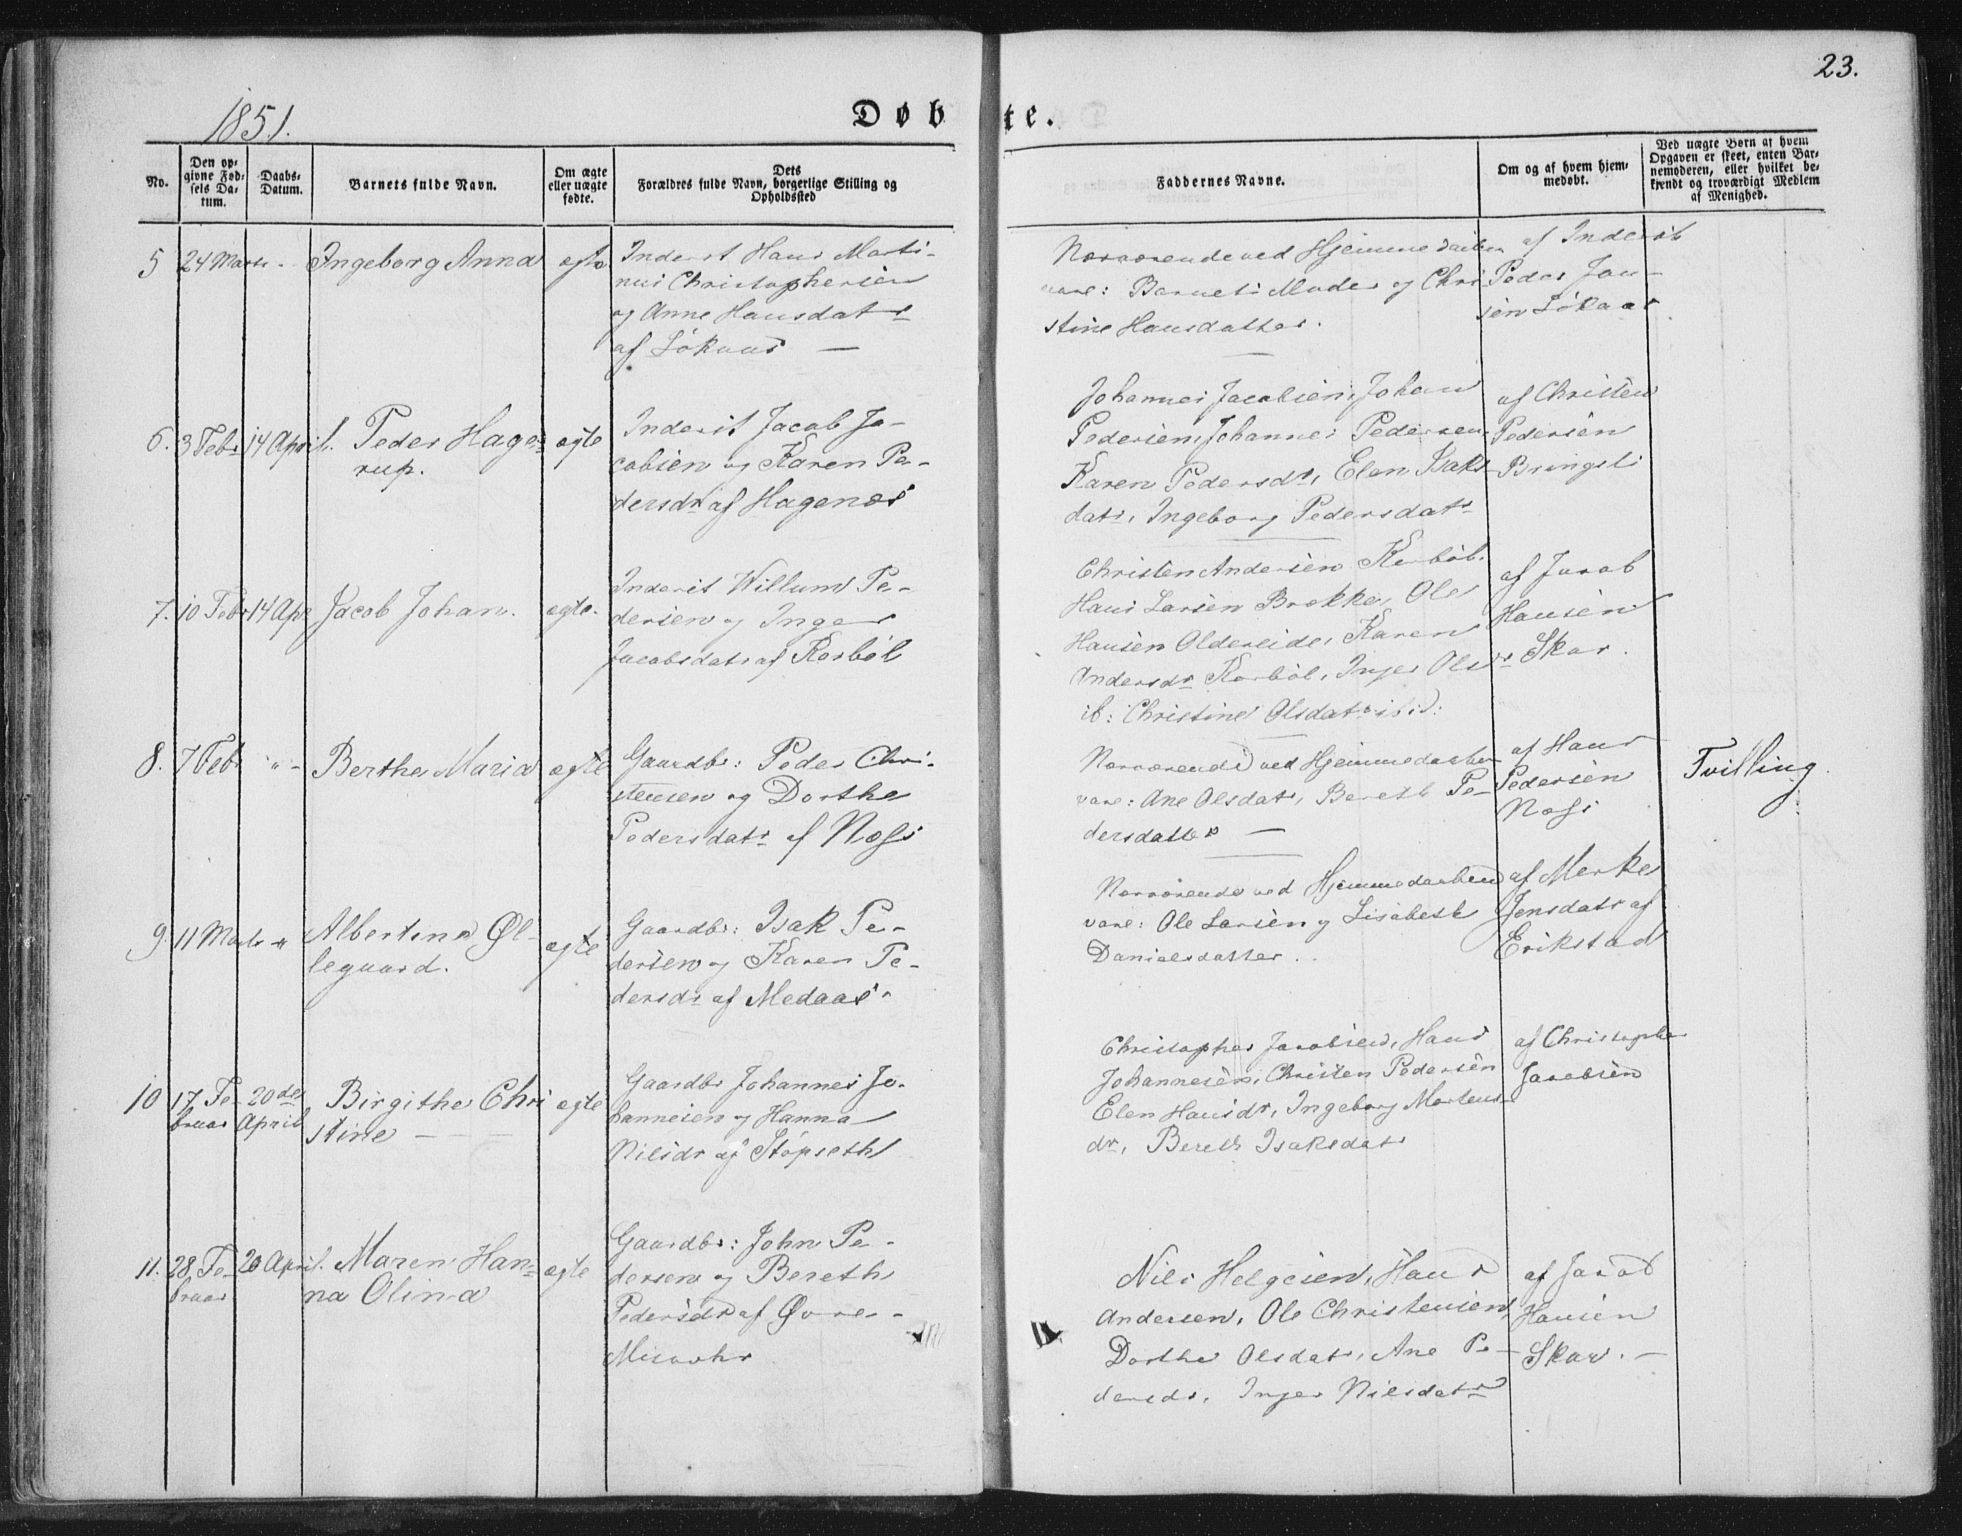 23.
1851.
Døbte.
No.
Den op-
givne Fød-
sels Da-
tum.
Daabs-
Datum.
Barnets fulde Navn.
Om ægte
eller uægte
fødte.
Dets
Forældres fulde Navn, borgerlige Stilling og
Opholdssted
Faddernes Navne.
Om og af hvem hjem-
medøbt.
Ved uægte Børn af hvem
Opgaven er skeet, enten Bar-
nemoderen, eller hvilket be-
kjendt og troværdigt Medlem
af Menighed.
5 24 Marts - Ingeborg Anna ægte
Inderst Hans Marti-
nus Christophersen
og Anne Hansdatr
af Løkaas —
Nærværende ved Hjemmedaaben
vare: Barnets Moder og Chri
stine Hansdatter.
af Inderst
Peder Jan-
sen Løkaas
6. 3 Febr 14 April. Peder Hage-
rup.
ægte
Inderst Jacob Ja-
cobsen og Karen Pe-
dersdr af Hagenæs
Johannes Jacobsen, Johan
Pedersen, Johannes Pedersen
Karen Pedersdr, Elen Isaks
datr, Ingeborg Pedersdatr
af Christen
Pedersen
Bringsli
7. 10 Febr 14 Apr Jacob Johan. ægte.
Inderst Willum Pe-
dersen og Inger
Jacobsdatr af Korbøl
Christen Andersen Korbøl.
Hans Larsen Brekke, Ole
Hansen Oldereide, Karen
Andersdr Korbøl, Inger Olsdr
ib: Christine Olsdatr ibid:
af Jacob
Hansen
Skar.
8. 7 Febr " - Berthe Maria ægte
Gaardbr: Peder Chri-
stensen og Dorthe
Pedersdatr af Næss
Nærværende ved Hjemmedaaben
vare: Ane Olsdatr, Bereth Pe-
dersdatter —
af Hans
Pedersen
Næss
Tvilling
9. 11 Marts " Albertine Øl-
legaard.
ægte
Gaardbr: Isak Pe-
dersen og Karen Pe-
dersdr af Medaas.
Nærværende ved Hjemmedaaben
vare: Ole Larsen og Lisabeth
Danielsdatter.
af Merke
Jensdatr af
Erikstad
10 17 Fe-
bruar
20de
April
Birgithe Chri
stine —
ægte
Gaardbr Johannes Jo-
hannesen og Hanna
Nilsdr af Støpseth
Christopher Jacobsen, Hans
Johannesen, Christen Pedersen
Elen Hansdr, Ingeborg Mortens-
dr, Bereth Isaksdatr
af Christopher
Jacobsen
11. 28 Fe-
bruar
20 April. Maren Han-
na Olina
ægte
Gaardbr: John Pe-
dersen og Bereth
Pedersdr af Øvre-
Misvær
Nils Helgesen, Hans
Andersen, Ole Christensen,
Dorthe Olsdatr, Ane Pe-
dersdr, Inger Nilsdatr
af Jacob
Hansen
Skar. —